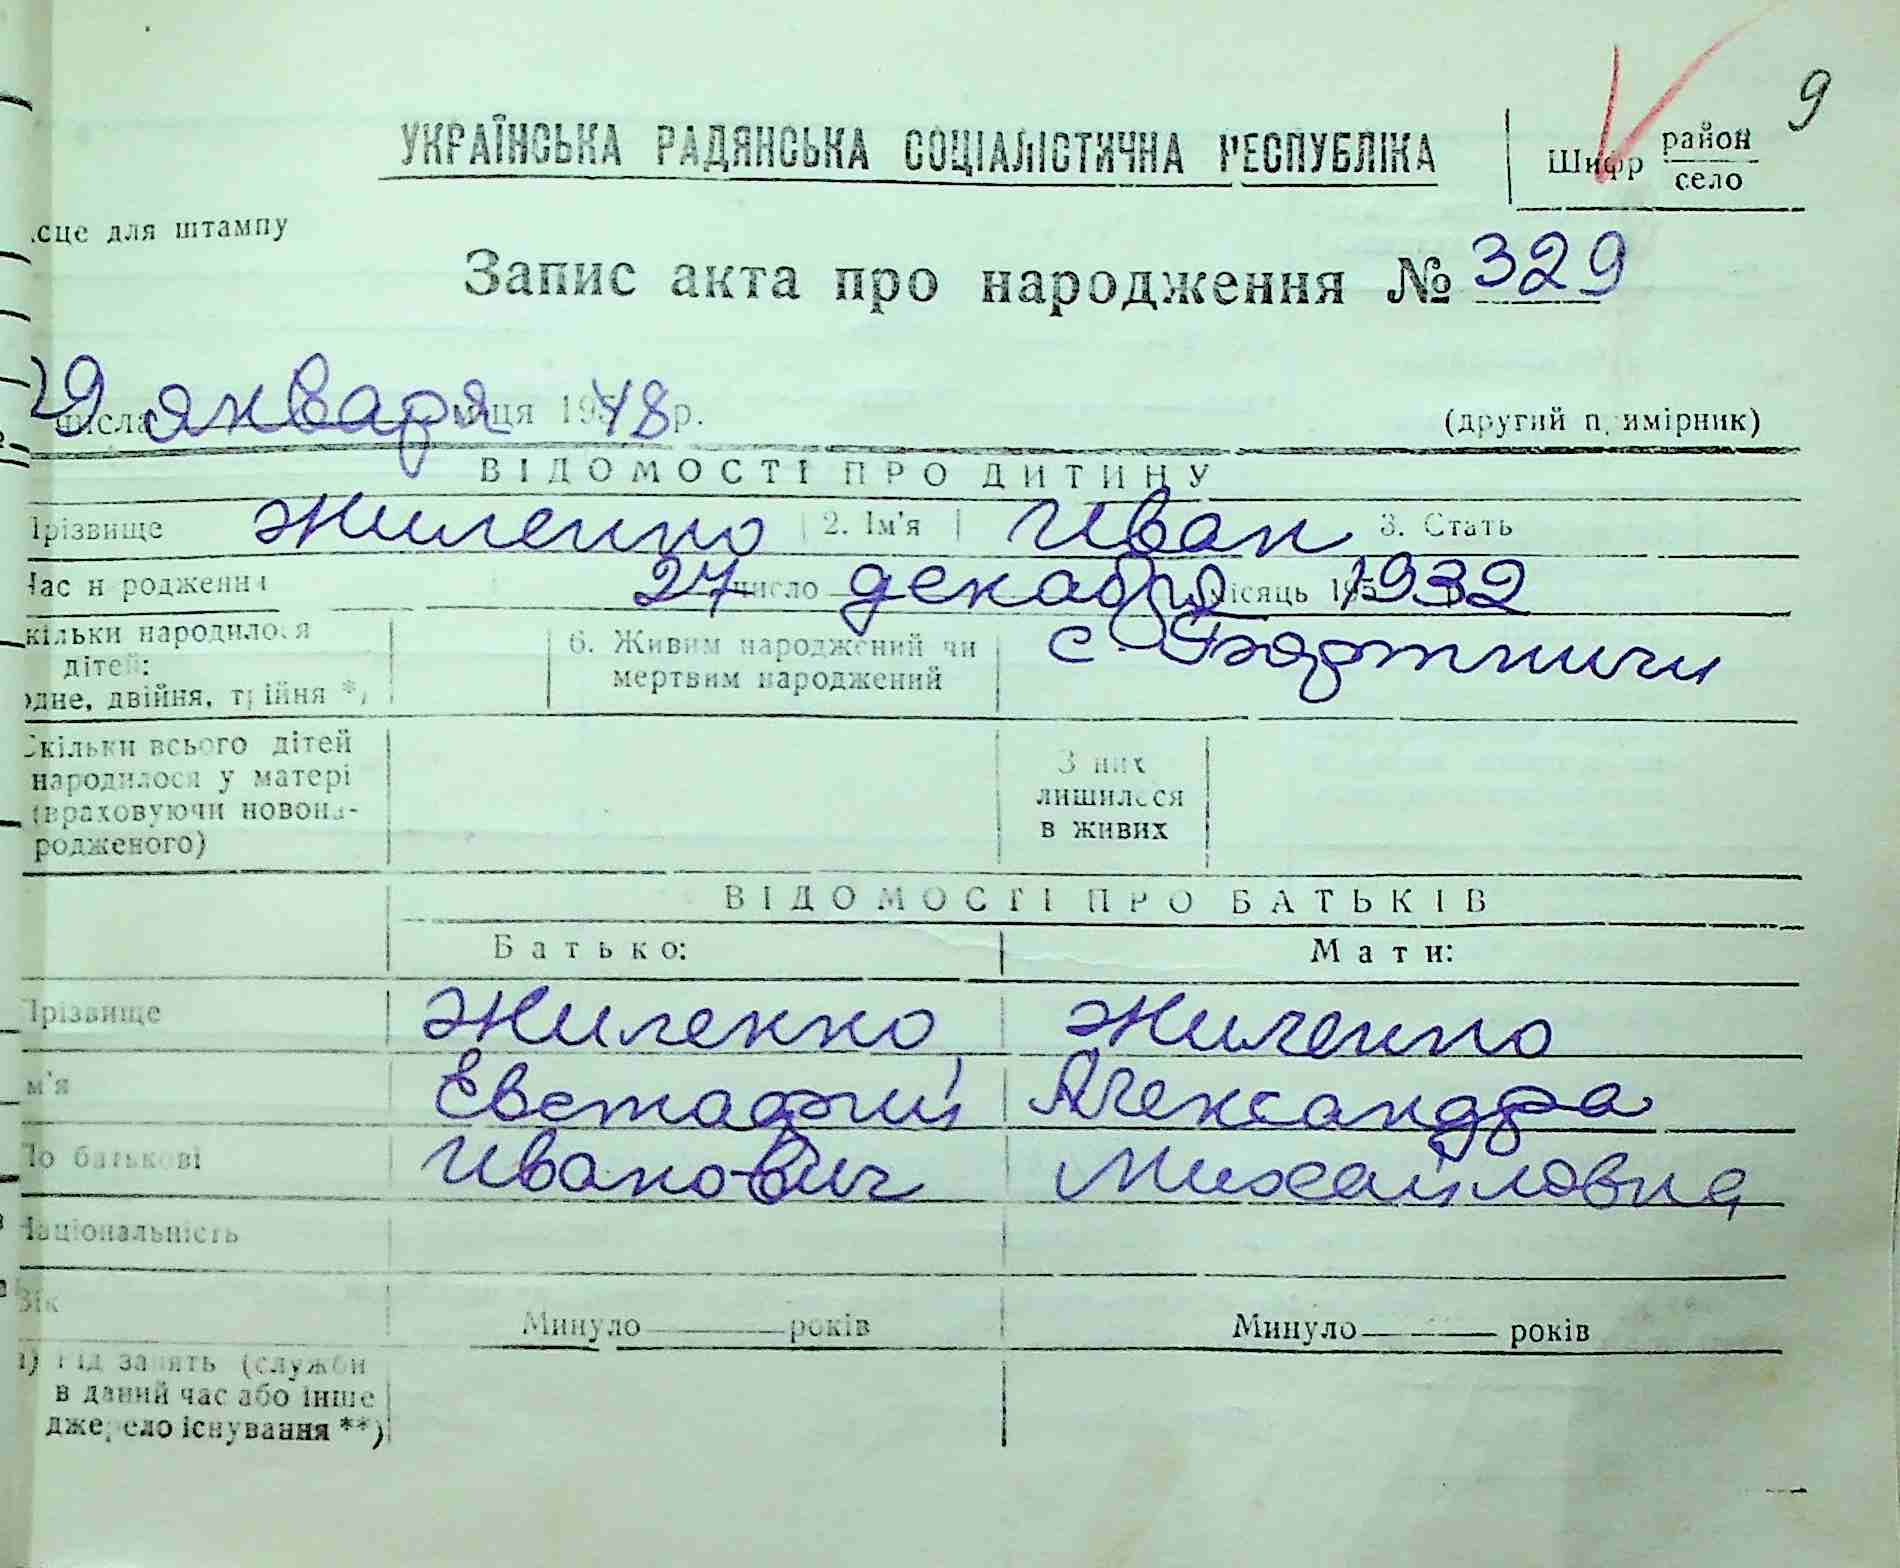 9
УКРАЇНСЬКА РАДЯНСЬКА СОЦІАЛІСТИЧНА РЕСПУБЛІКА
Шифр район
село
сце для штампу
Запис акта про народження № 329
29 числа января м-ця 1948 р.
(другий примірник)
ВІДОМОСТІ ПРО ДИТИНУ
Прізвище Жиленко 2. Ім'я Иван 3. Стать
Час народження 27 число декабря місяць 195 1932
кільки народилося дітей: одне, двійня, трійня *)
6. Живим народжений чи мертвим народжений
с Бортничи
Скільки всього дітей народилося у матері (враховуючи новонародженого)
З них лишилося в живих
ВІДОМОСТІ ПРО БАТЬКІВ
Батько: Мати:
Прізвище Жиленко Жиленко
м'я Евстафий Александра
По батькові Иванович Михайловна
Національність
Вік Минуло ——— років Минуло ——— років
а) Рід занять (служби в даний час або інше джерело існування **)